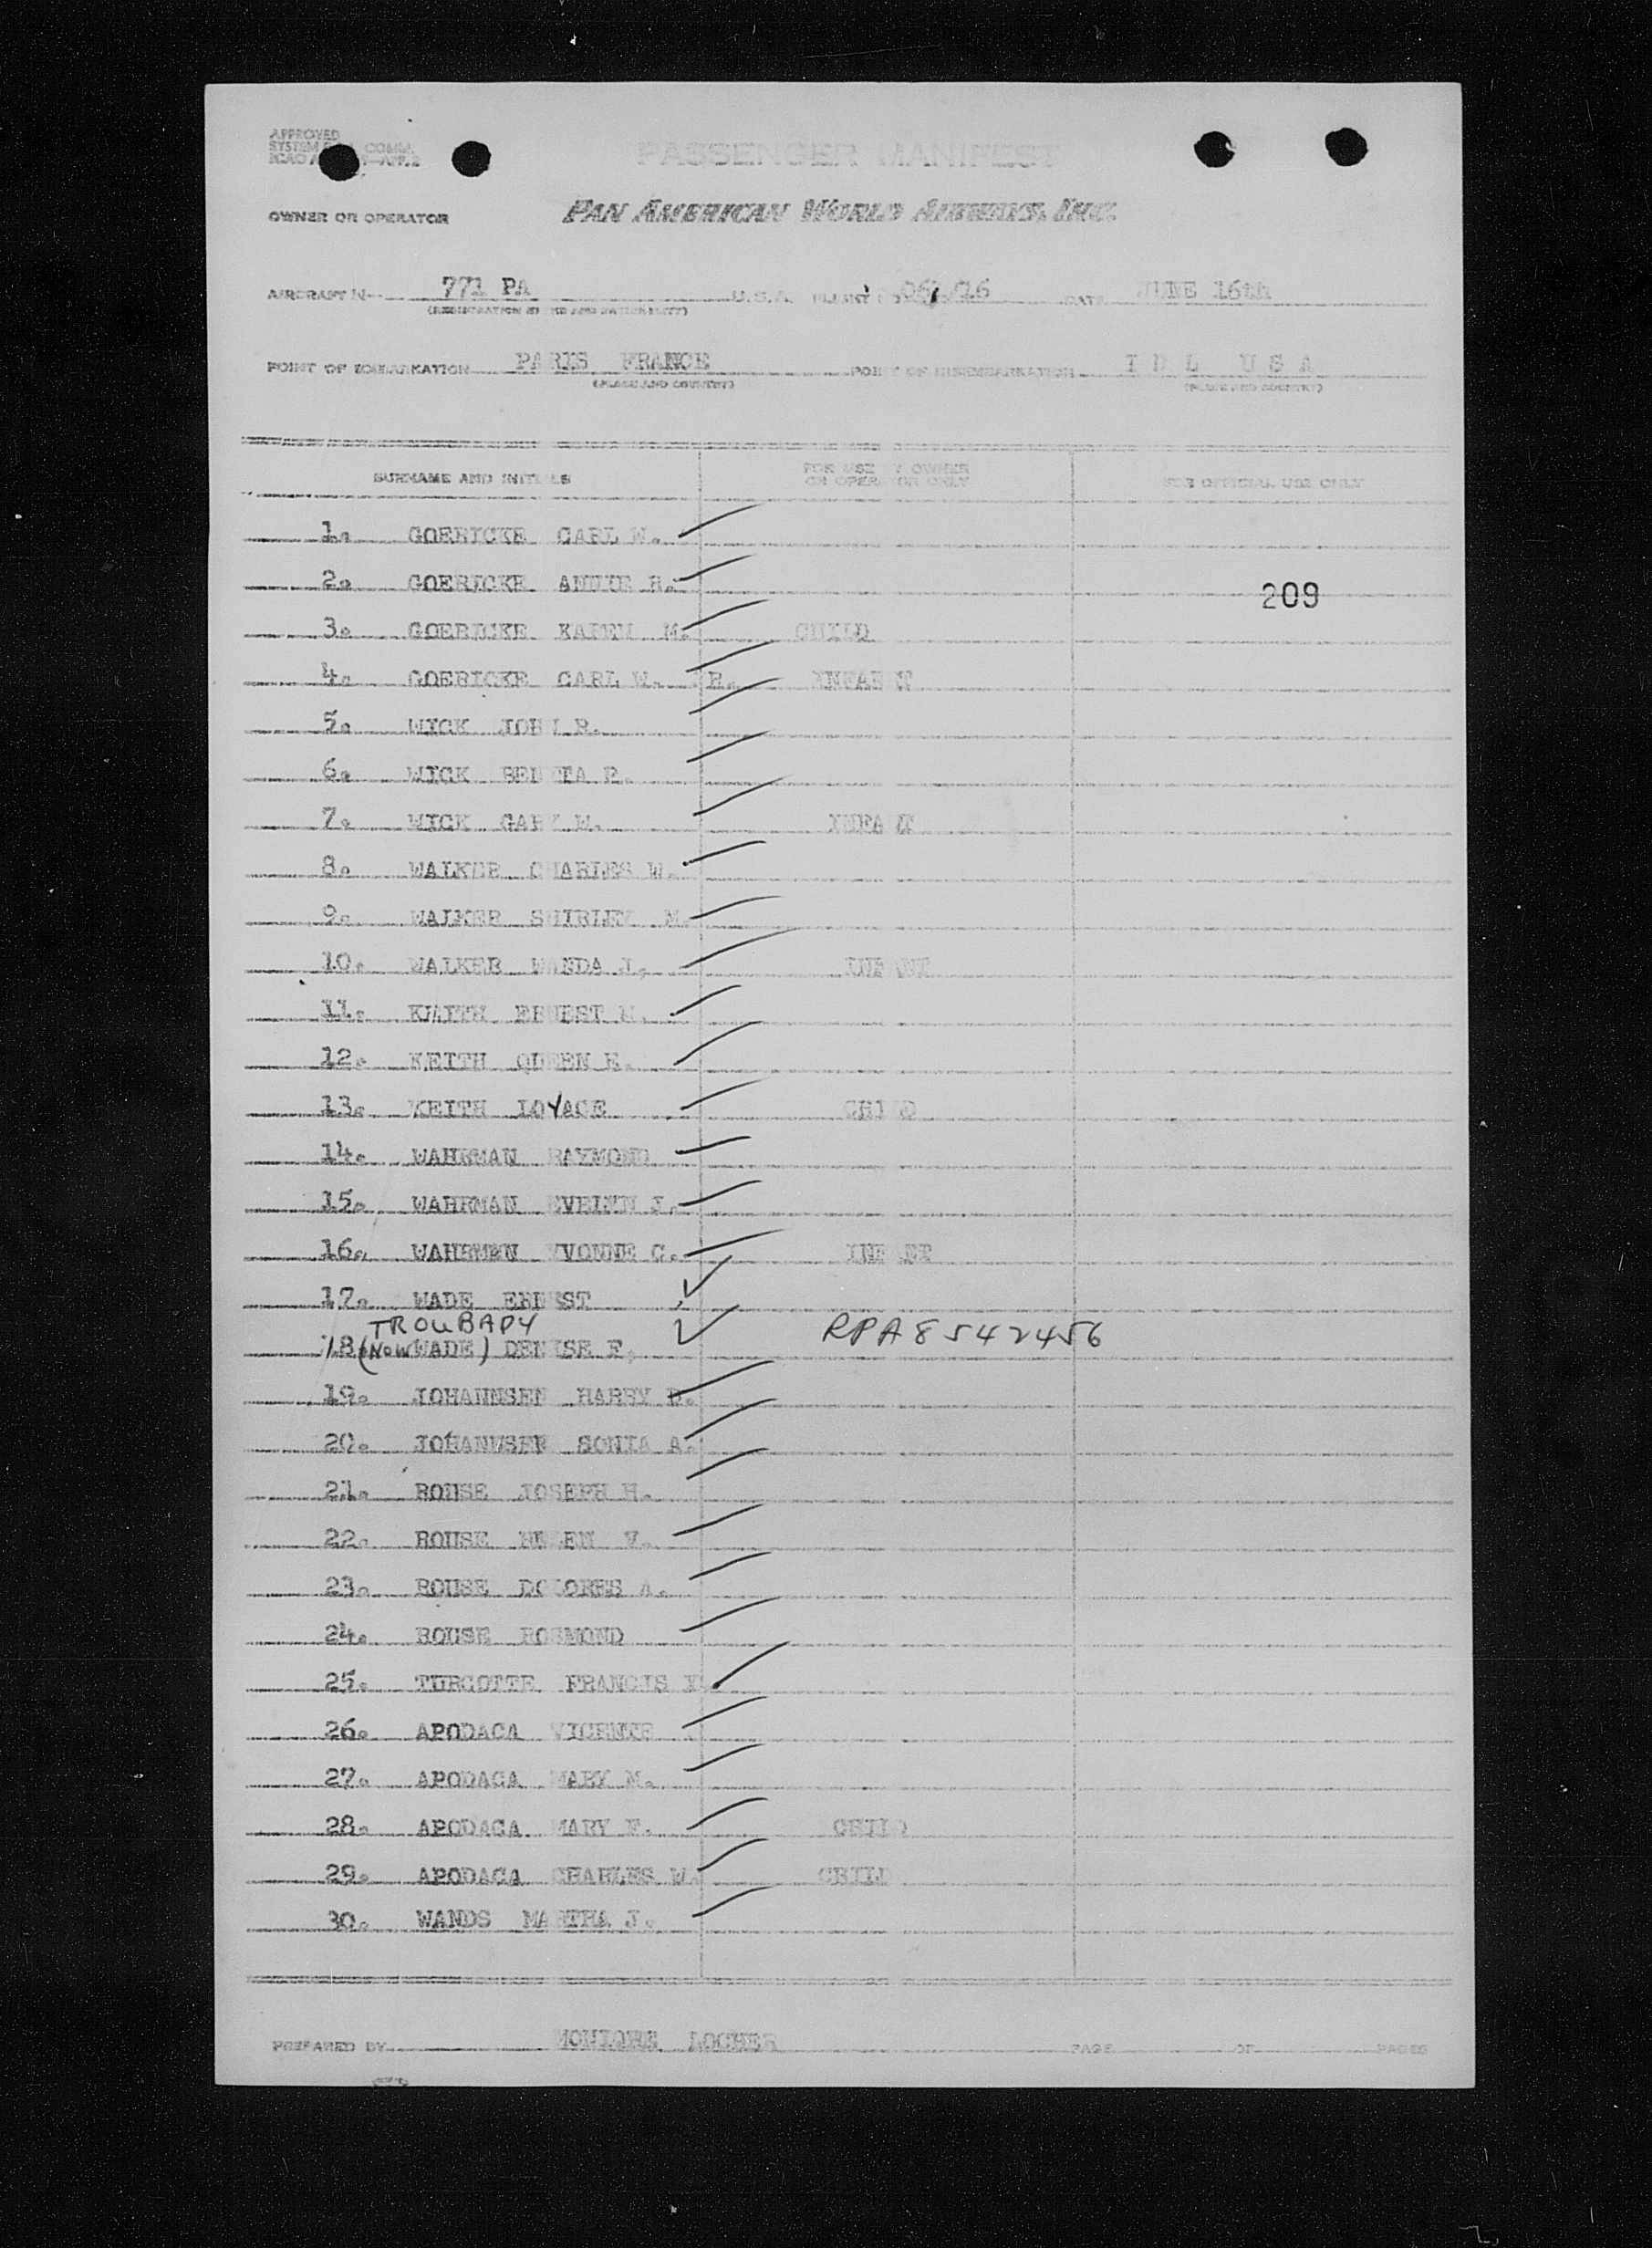 APPROVED
SYSTEM COMM.
ICAO APP. 2
PASSENGER MANIFEST
OWNER OR OPERATOR PAN AMERICAN WORLD AIRWAYS, INC.
AIRCRAFT N 771 PA U.S.A. FLIGHT 06/16 DATE JUNE 16th
(REGISTRATION AND NATIONALITY)
POINT OF EMBARKATION PARIS FRANCE POINT OF DISEMBARKATION I D L U S A
(PLACE AND COUNTRY) (PLACE AND COUNTRY)
SURNAME AND INITIALS FOR USE BY OWNER OR OPERATOR ONLY FOR OFFICIAL USE ONLY
1. GOERICKE CARL W.
2. GOERICKE R. 209
3. GOERICKE KAREN M. CHILD
4. GOERICKE CARL W. JR. INFANT
5. WICK JOHN R.
6. WICK BENITA R.
7. WICK GARY W. INFANT
8. WALKER CHARLES W.
9. WALKER SHIRLEY M.
10. WALKER WANDA J. INFANT
11. KEITH ERNEST
12. KEITH QUEEN E.
13. KEITH LOYACE CHILD
14. WAHRMAN RAYMOND
15. WAHRMAN EVELYN J.
16. WAHRMEN YVONNE C. INFANT
17. WADE ERNEST
TROUBADY
18 (NOW WADE) DENISE F. RPA 8542456
19. JOHANNSEN HARRY D.
20. JOHANNSEN SONIA A.
21. ROUSE JOSEPH H.
22. ROUSE HELEN V.
23. ROUSE DOLORES A.
24. ROUSE ROSMOND
25. TURCOTTE FRANCIS
26. APODACA VICENTE
27. APODACA MARY M.
28. APODACA MARY F. CHILD
29. APODACA CHARLES W. CHILD
30. WANDS MARTHA J.
PREPARED BY LOCHER PAGE OF PAGES